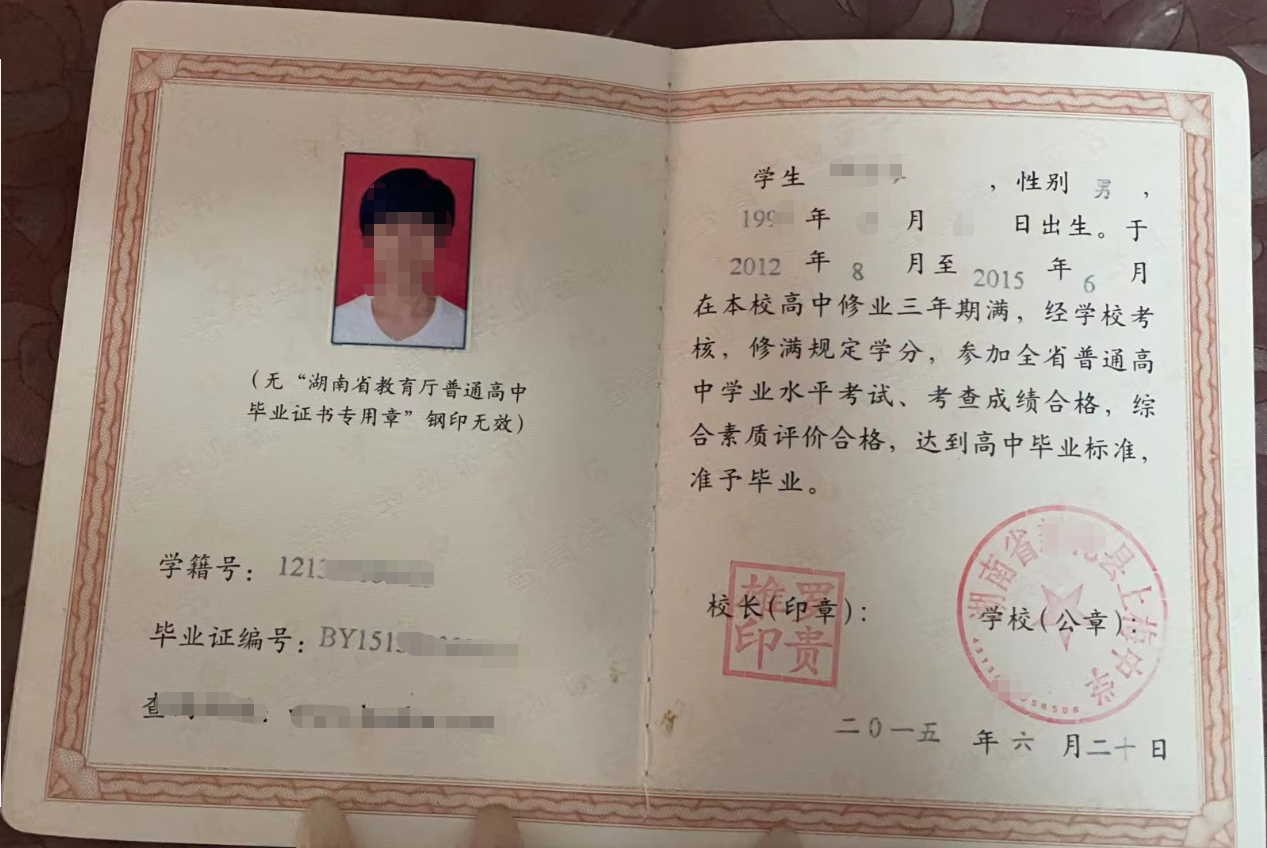 (无“湖南省教育厅普通高中
毕业证书专用章”钢印无效)
学籍号: 1213
毕业证编号: BY1515
学生 , 性别 男 ,
199 年 月 日出生。于
2012 年 8 月至 2015 年 6 月
在本校高中修业三年期满, 经学校考
核, 修满规定学分, 参加全省普通高
中学业水平考试、考查成绩合格, 综
合素质评价合格, 达到高中毕业标准,
准予毕业。
校长(印章):
罗贵雄印
学校(公章):
湖南省 县上梅中学
二0一五 年 六 月二十日